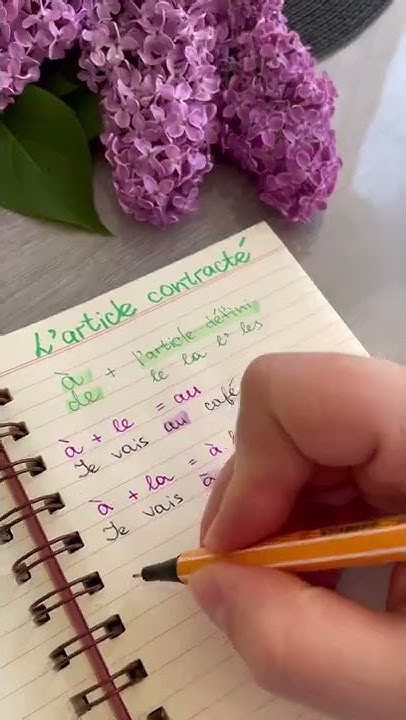 L'article contracté
à + l'article défini
de le la l' les
à + le = au
Je vais au café
à + la = à
Je vais à